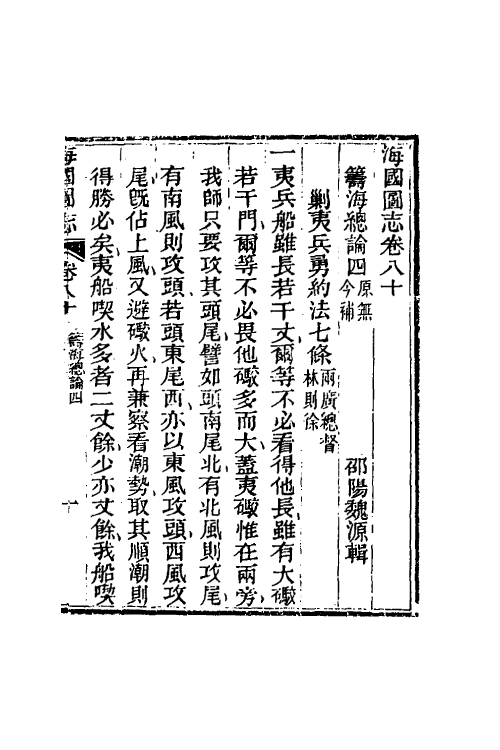 海國圖志卷八十
籌海總論四 原無今補 邵陽魏源輯
剿夷兵勇約法七條 兩廣總督林則徐
一夷兵船雖長若干丈爾等不必看得他長雖有大礮
若干門爾等不必畏他礮多而大蓋夷礮惟在兩旁
我師只要攻其頭尾譬如頭南尾北有北風則攻尾
有南風則攻頭若頭東尾西亦以東風攻頭西風攻
尾旣佔上風又避礮火再兼察看潮勢取其順潮則
得勝必矣夷船喫水多者二丈餘少亦丈餘我船喫
海國圖志 卷八十 籌海總論四 一